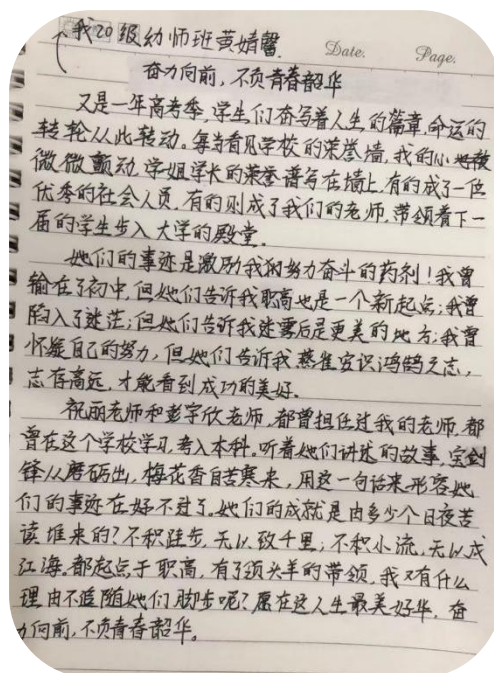 我20级幼师班黄婧馨.
Date. Page.
奋力向前,不负青春韶华
又是一年高考季,学生们奋写着人生的篇章,命运的
转轮从此转动。每当看见学校的荣誉墙,我的心
微微颤动,学姐学长的荣誉谱写在墙上,有的成了一位
优秀的社会人员,有的则成了我们的老师,带领着下一
届的学生步入大学的殿堂.
她们的事迹是激励我们努力奋斗的药剂!我曾
输在了初中,但她们告诉我职高也是一个新起点;我曾
陷入了迷茫;但她们告诉我迷雾后是更美的地方;我曾
怀疑自己的努力,但她们告诉我燕雀安识鸿鹄之志,
志存高远,才能看到成功的美好.
祝丽老师和彭宇欣老师,都曾担任过我的老师,都
曾在这个学校学习,考入本科。听着她们讲述的故事,宝剑
锋从磨砺出,梅花香自苦寒来,用这一句话来形容她
们的事迹在好不过了。她们的成就是由多少个日夜苦
读堆来的?不积跬步,无以致千里;不积小流,无以成
江海。都起点于职高,有了领头羊的带领,我又有什么
理由不追随她们脚步呢?愿在这人生最美好华,奋
力向前,不负青春韶华。